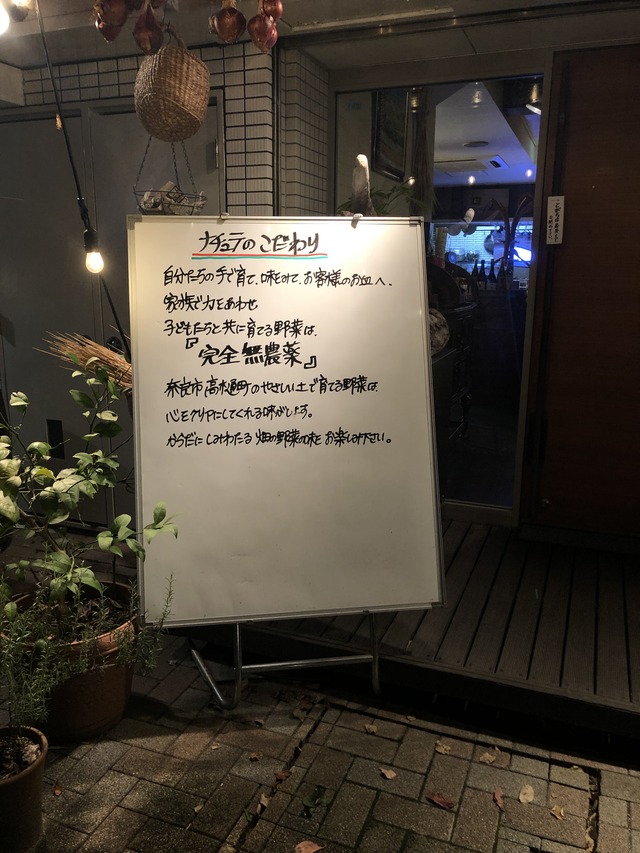 ナチュラのこだわり
自分たちの手で育て、味をみて、お客様のお皿へ、
家族で力をあわせ
子どもたちと共に育てる野菜は、
『完全無農薬』
奈良市のやさしい土で育てる野菜は、
心をクリアにしてくれる味がします。
からだにしみわたる 畑の野菜の味を お楽しみ下さい。